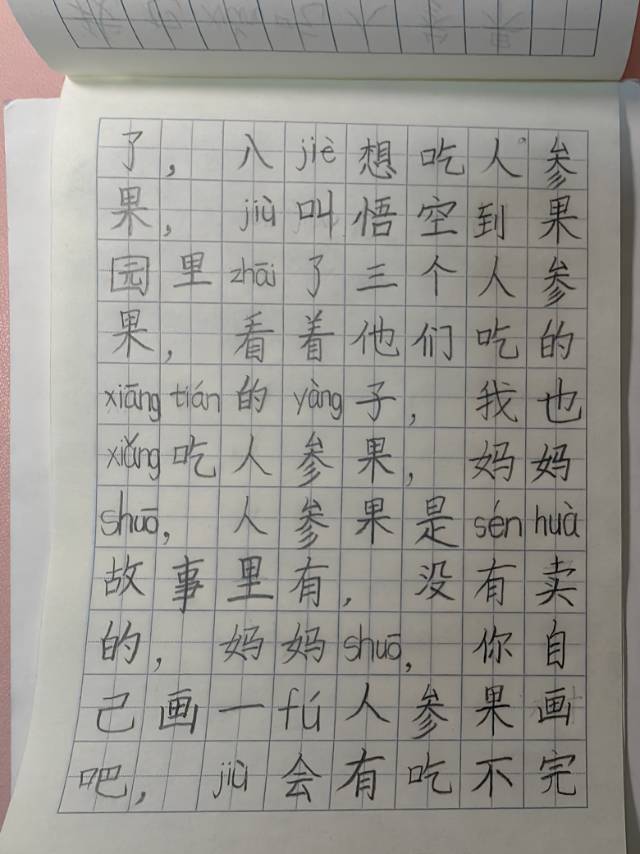 了，八jiè想吃人参
果，jiù叫悟空到果
园里zhāi了三个人参
果，看着他们吃的
xiāng tián的yàng子，我也
xiǎng吃人参果，妈妈
shuō，人参果是sén huà
故事里有，没有卖
的，妈妈shuō，你自
己画一fú人参果画
吧，jiù会有吃不完